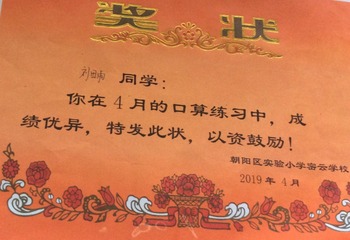 奖状
同学：
你在4月的口算练习中，成
绩优异，特发此状，以资鼓励！
朝阳区实验小学密云学校
2019年4月